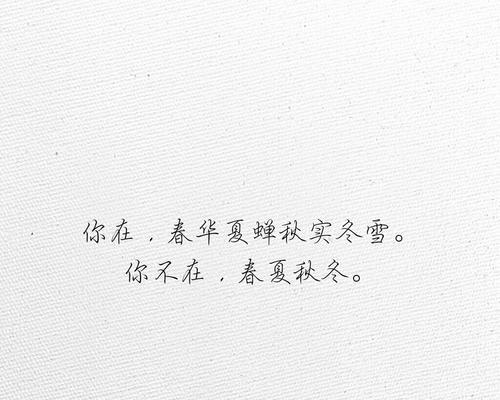 你在，春华夏蝉秋实冬雪。
你不在，春夏秋冬。